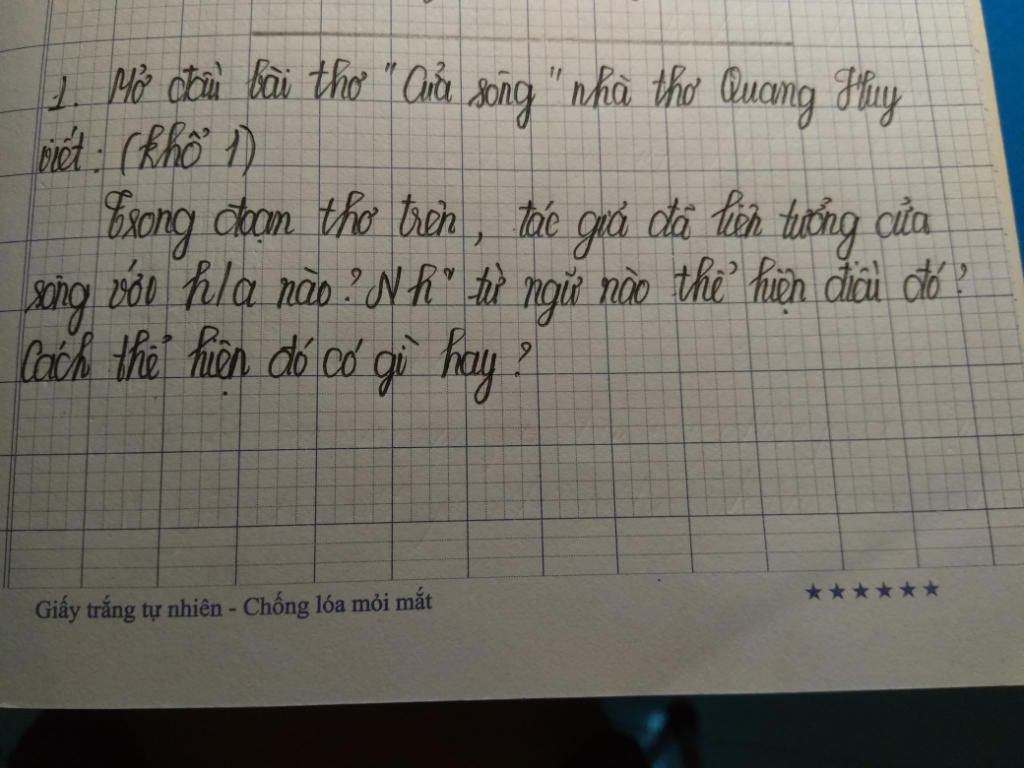 1. Mở đầu bài thơ "Cửa sông" nhà thơ Quang Huy
viết: (khổ 1)
Trong đoạn thơ trên, tác giả đã liên tưởng cửa
sông với h/a nào? Nh" từ ngữ nào thể hiện điều đó?
Cách thể hiện đó có gì hay?
Giấy trắng tự nhiên - Chống lóa mỏi mắt
★★★★★★